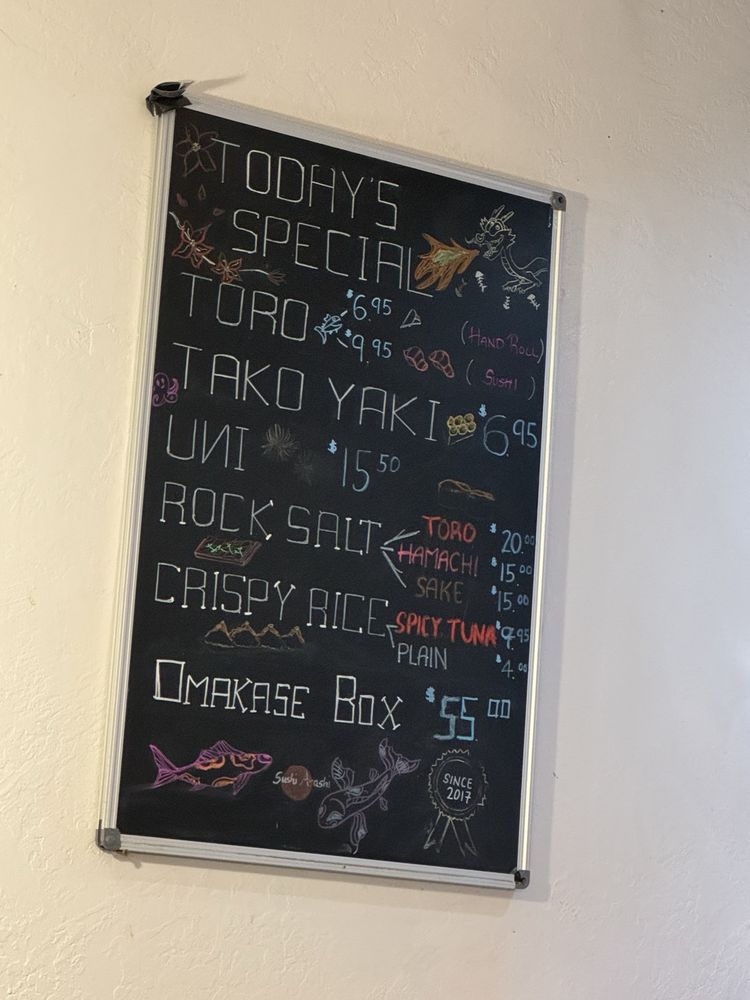 TODAY'S
SPECIAL
TORO $6.95 (HAND ROLL)
$9.95 (SUSHI)
TAKO YAKI $6.95
UNI $15.50
ROCK SALT TORO $20.00
HAMACHI $15.00
SAKE $15.00
CRISPY RICE SPICY TUNA $9.95
PLAIN $4.00
OMAKASE BOX $55.00
Sushi Arashi
SINCE
2017